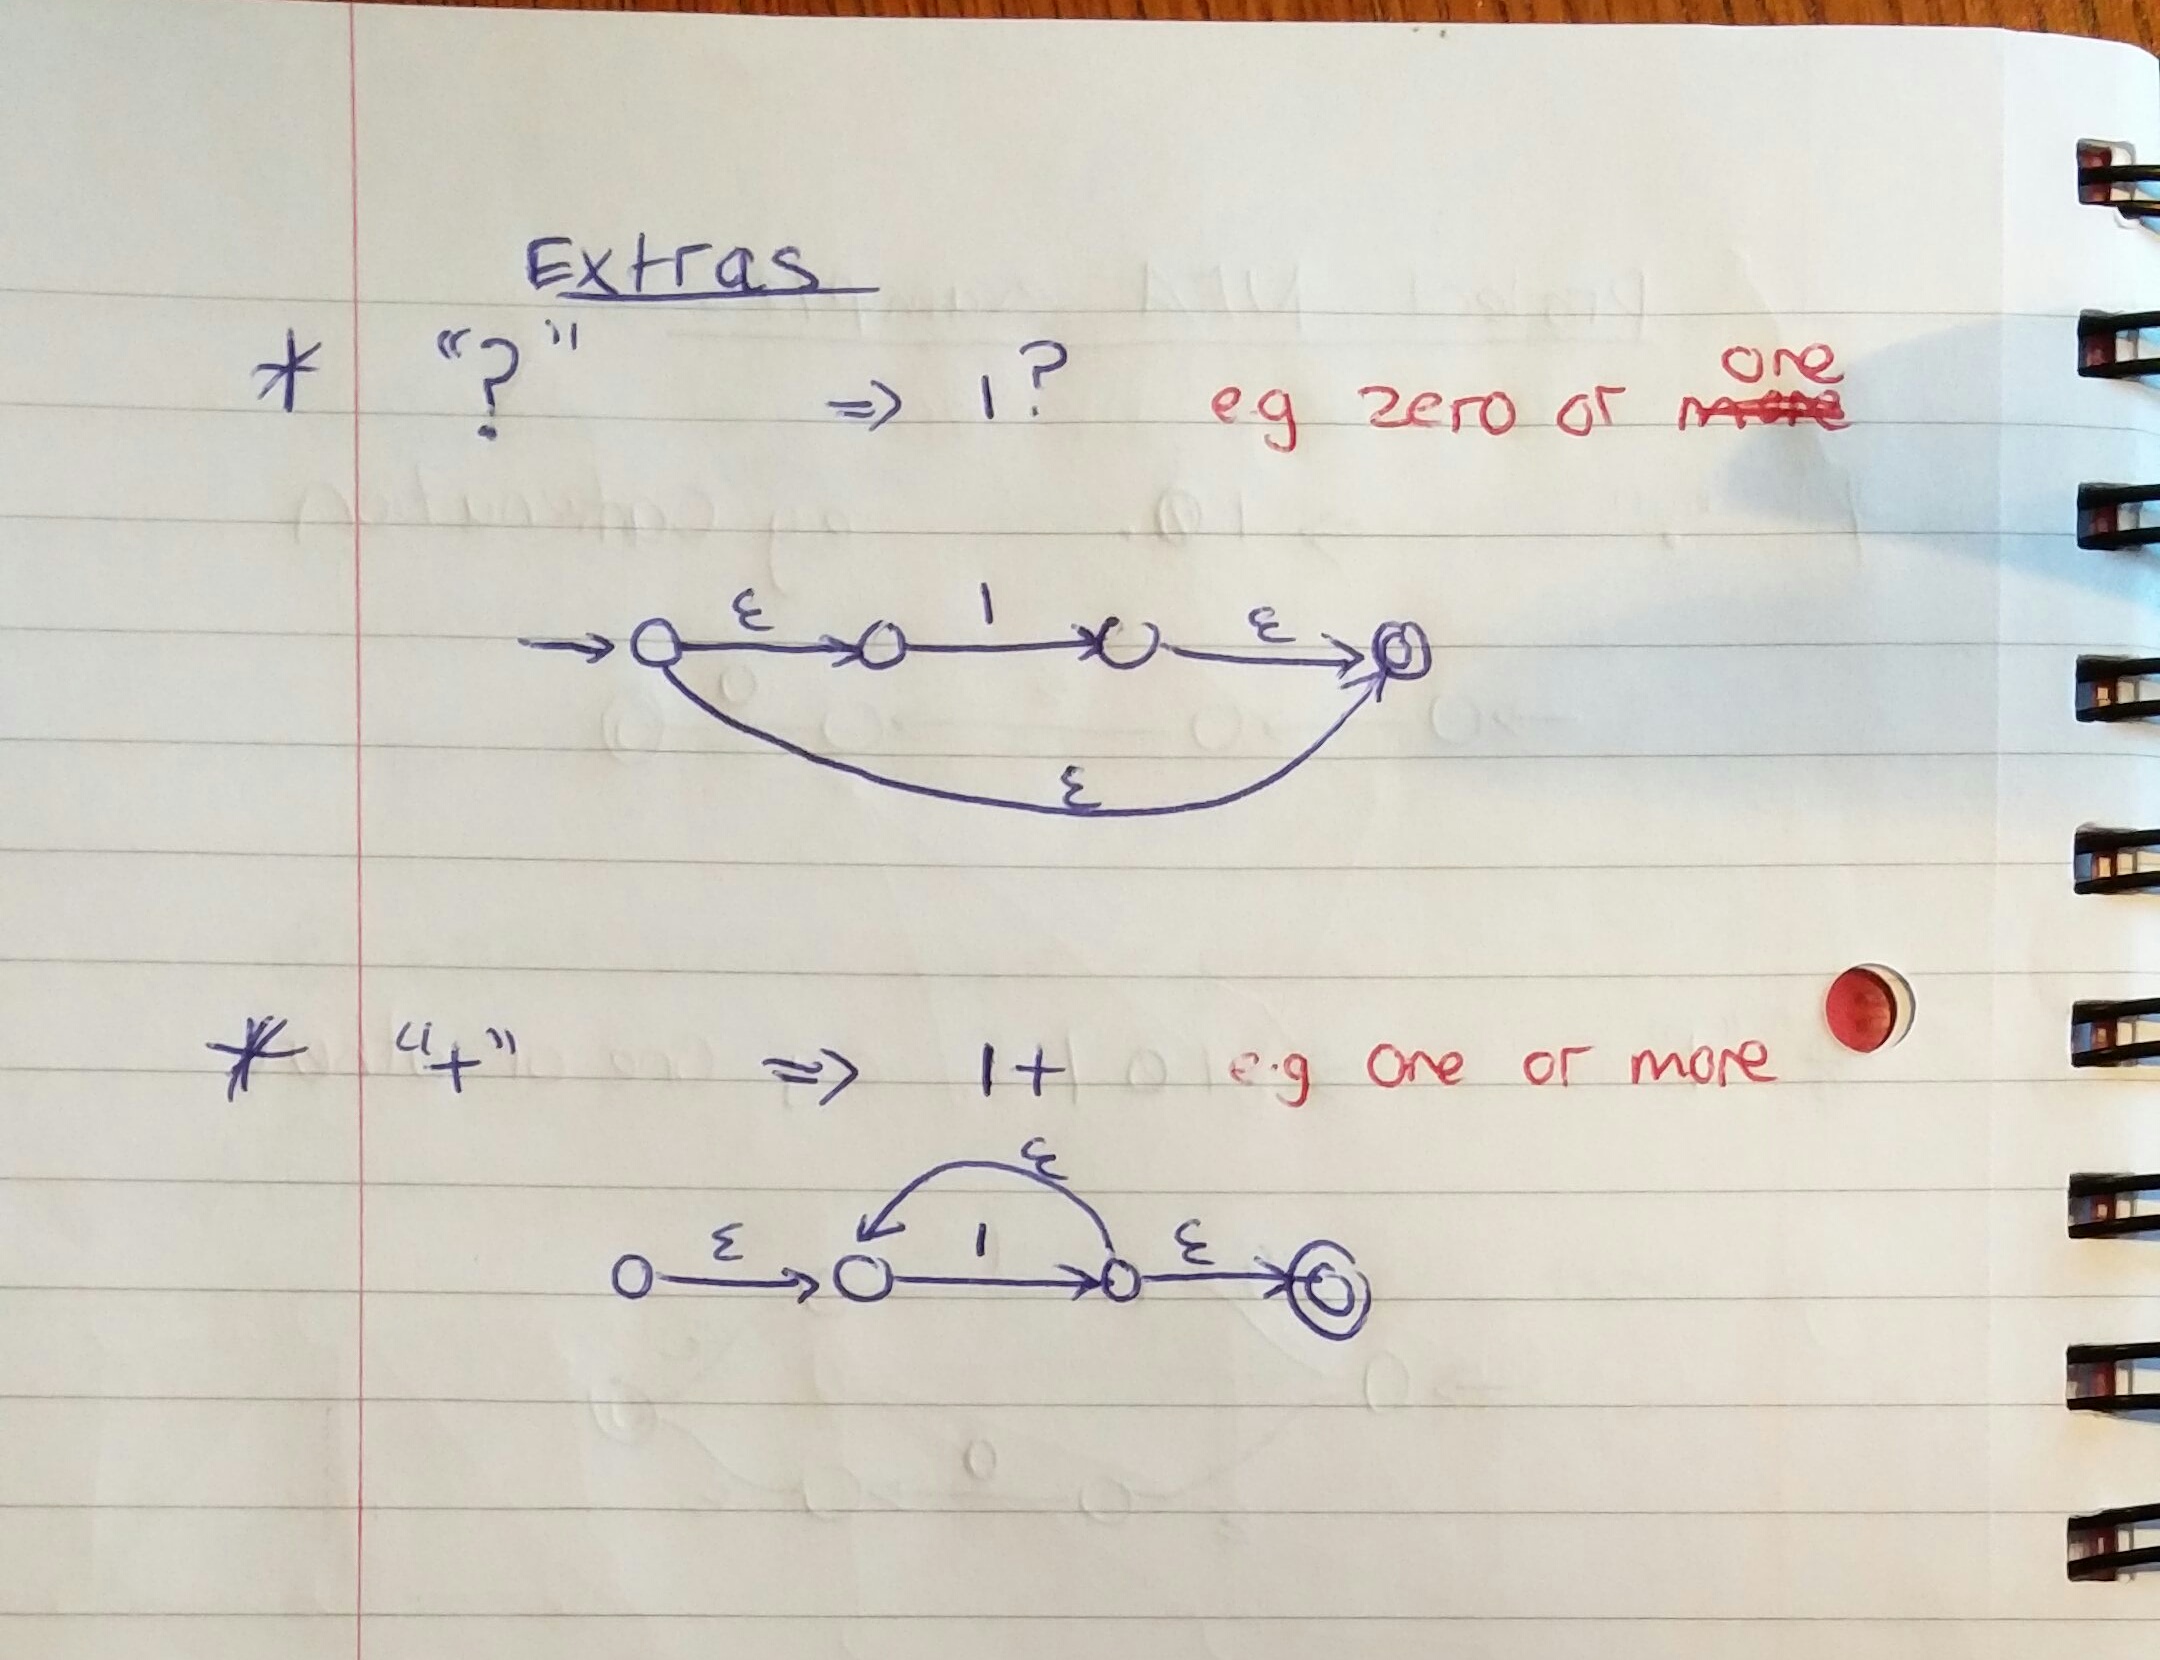 Extras
* "?" => 1? e.g zero or more one
ε 1 ε
ε
* "+" => 1+ e.g one or more
ε
ε 1 ε